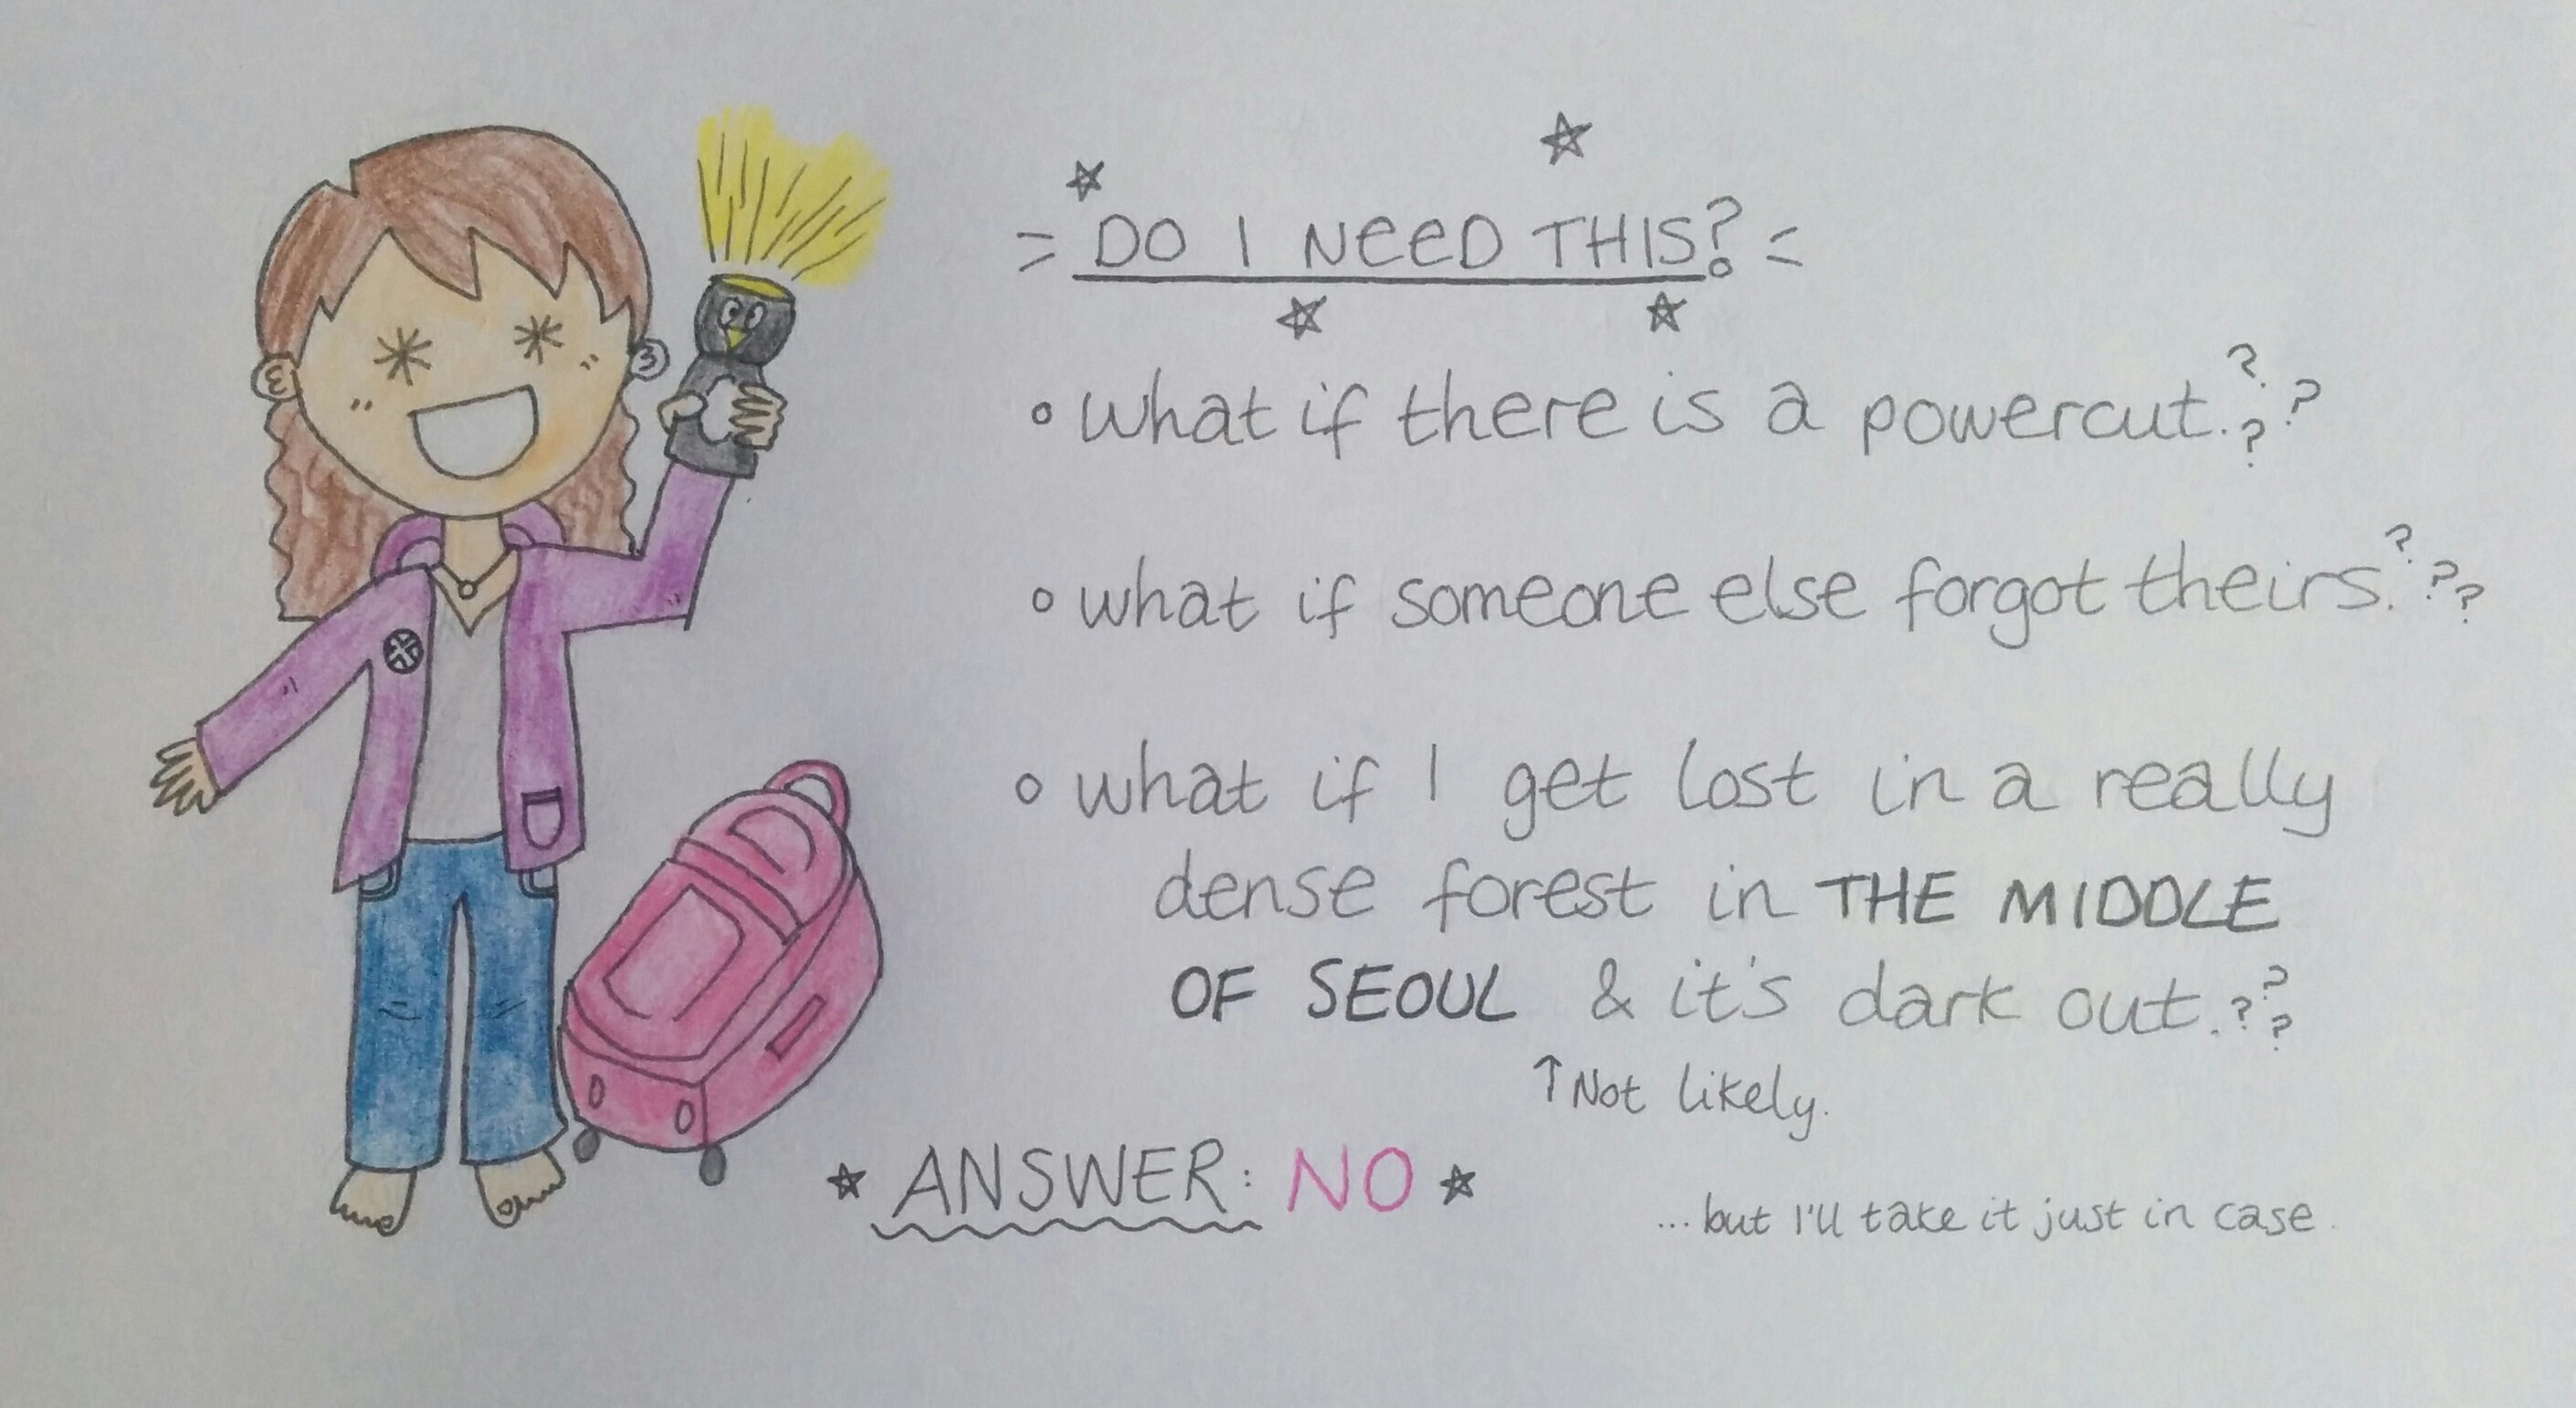 = DO I NEED THIS? =
• what if there is a powercut.???
• what if someone else forgot theirs.???
• what if I get lost in a really
dense forest in THE MIDDLE
OF SEOUL & it's dark out.???
↑ Not likely.
★ ANSWER: NO ★
...but I'll take it just in case.